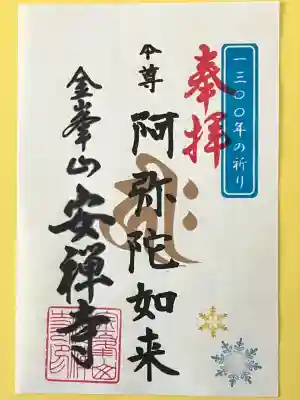 一三〇〇年の祈り
奉拝
本尊
阿弥陀如来
金峯山
安禅寺